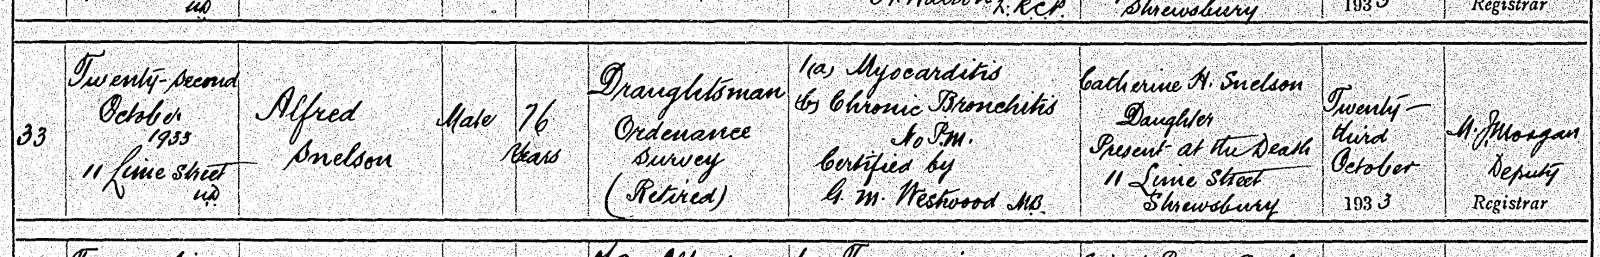 U.D.
L.R.C.P.
Shrewsbury
1933
Registrar
33
Twenty-second
October
1933
11 Lime Street
U.D.
Alfred
Snelson
Male
76
Years
Draughtsman
Ordenance
Survey
(Retired)
1(a) Myocarditis
(b) Chronic Bronchitis
No P.M.
Certified by
G. M. Westwood M.B.
Catherine H. Snelson
Daughter
Present at the Death
11 Lime Street
Shrewsbury
Twenty-
third
October
1933
M. J. Morgan
Deputy
Registrar